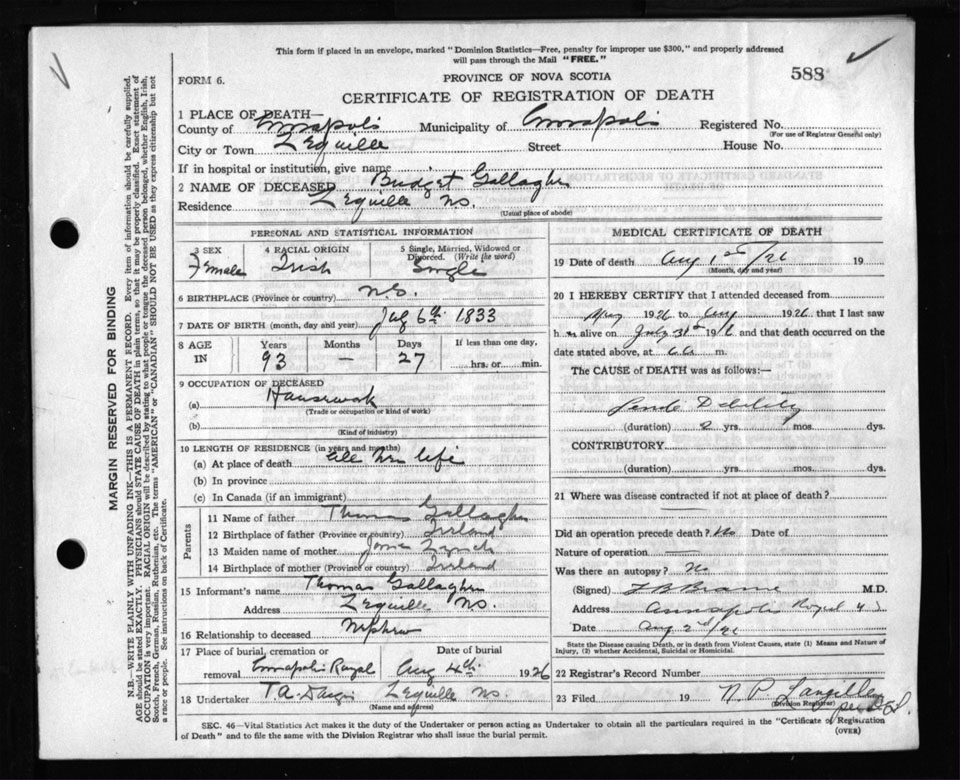 This form if placed in an envelope, marked "Dominion Statistics—Free, penalty for improper use $300," and properly addressed
will pass through the Mail "FREE."
588
FORM 6.
PROVINCE OF NOVA SCOTIA
CERTIFICATE OF REGISTRATION OF DEATH
1 PLACE OF DEATH—
County of Annapolis Municipality of Annapolis Registered No.
(For use of Registrar General only)
City or Town Lequille Street House No.
If in hospital or institution, give name
2 NAME OF DECEASED Bridget Gallagher
Residence Lequille N.S.
(Usual place of abode)
PERSONAL AND STATISTICAL INFORMATION
3 SEX Female
4 RACIAL ORIGIN Irish
5 Single, Married, Widowed or Divorced. (Write the word) Single
6 BIRTHPLACE (Province or country) N.S.
7 DATE OF BIRTH (month, day and year) 6th 1833
8 AGE IN Years 93 Months — Days 27 If less than one day, hrs. or min.
9 OCCUPATION OF DECEASED
(a) Housework
(Trade or occupation or kind of work)
(b)
(Kind of industry)
10 LENGTH OF RESIDENCE (in years and months)
(a) At place of death all her life
(b) In province
(c) In Canada (if an immigrant)
Parents
11 Name of father Thomas Gallagher
12 Birthplace of father (Province or country) Irland
13 Maiden name of mother Lynch
14 Birthplace of mother (Province or country) Irland
15 Informant's name Thomas Gallagher
Address Lequille N.S.
16 Relationship to deceased Nephew
17 Place of burial, cremation or removal Annapolis Royal Date of burial Aug 4th 1926
18 Undertaker T.A. Lequille N.S.
(Name and address)
MEDICAL CERTIFICATE OF DEATH
19 Date of death Aug 1st/26 19
(Month, day and year)
20 I HEREBY CERTIFY that I attended deceased from
1926 to Aug 1926, that I last saw
h er alive on July 31st 19 and that death occurred on
date stated above, at m.
The CAUSE of DEATH was as follows:—
Senile Debility
(duration) 2 yrs. mos. dys.
CONTRIBUTORY
(duration) yrs. mos. dys.
21 Where was disease contracted if not at place of death?
Did an operation precede death? No Date of
Nature of operation —
Was there an autopsy? No
(Signed) M.D.
Address Annapolis Royal
Date Aug 2nd/26
State the Disease causing Death, or in death from Violent Causes, state (1) Means and Nature of
Injury, (2) whether Accidental, Suicidal or Homicidal.
22 Registrar's Record Number
23 Filed 19 N. P. Langille
(Division Registrar)
SEC. 46—Vital Statistics Act makes it the duty of the Undertaker or person acting as Undertaker to obtain all the particulars required in the "Certificate of Registration
of Death" and to file the same with the Division Registrar who shall issue the burial permit.
(OVER)
MARGIN RESERVED FOR BINDING
N.B.—WRITE PLAINLY WITH UNFADING INK—THIS IS A PERMANENT RECORD. Every item of information should be carefully supplied.
AGE should be stated EXACTLY. PHYSICIANS should STATE CAUSE OF DEATH in plain terms, so that it may be properly classified. Exact statement of
OCCUPATION is very important. RACIAL ORIGIN will be described by stating to what people or tongue the deceased person belonged, whether English, Irish,
Scotch, French, German, Russian, Ruthenian, etc. The terms "AMERICAN" or "CANADIAN" SHOULD NOT BE USED as they express citizenship but not
a race or people. See instructions on back of Certificate.